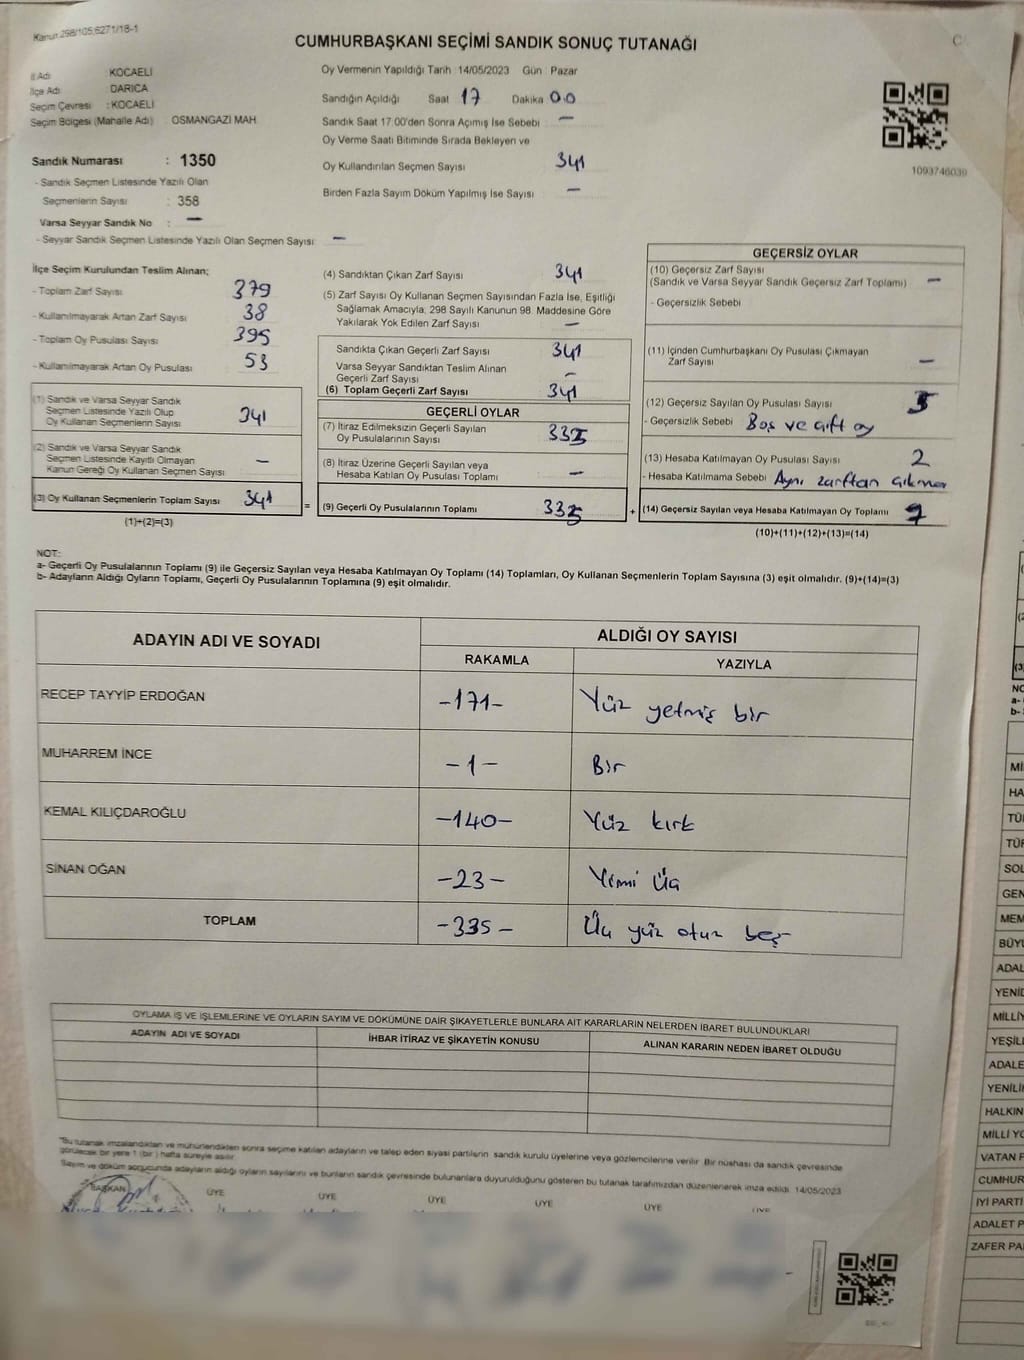 Kanun 298/105;6271/18-1
CUMHURBAŞKANI SEÇİMİ SANDIK SONUÇ TUTANAĞI
İl Adı : KOCAELİ
İlçe Adı : DARICA
Seçim Çevresi : KOCAELİ
Seçim Bölgesi (Mahalle Adı) OSMANGAZİ MAH.
Sandık Numarası : 1350
- Sandık Seçmen Listesinde Yazılı Olan
Seçmenlerin Sayısı : 358
Varsa Seyyar Sandık No : —
- Seyyar Sandık Seçmen Listesinde Yazılı Olan Seçmen Sayısı: —
Oy Vermenin Yapıldığı Tarih :14/05/2023 Gün : Pazar
Sandığın Açıldığı Saat 17 Dakika 00
Sandık Saat 17:00'den Sonra Açılmış İse Sebebi : —
Oy Verme Saati Bitiminde Sırada Bekleyen ve
Oy Kullandırılan Seçmen Sayısı 341
Birden Fazla Sayım Döküm Yapılmış İse Sayısı : —
1093746039
İlçe Seçim Kurulundan Teslim Alınan;
- Toplam Zarf Sayısı 379
- Kullanılmayarak Artan Zarf Sayısı 38
- Toplam Oy Pusulası Sayısı 395
- Kullanılmayarak Artan Oy Pusulası 53
(1) Sandık ve Varsa Seyyar Sandık
Seçmen Listesinde Yazılı Olup
Oy Kullanan Seçmenlerin Sayısı 341
(2) Sandık ve Varsa Seyyar Sandık
Seçmen Listesinde Kayıtlı Olmayan
Kanun Gereği Oy Kullanan Seçmen Sayısı —
(3) Oy Kullanan Seçmenlerin Toplam Sayısı 341
(1)+(2)=(3)
(4) Sandıktan Çıkan Zarf Sayısı 341
(5) Zarf Sayısı Oy Kullanan Seçmen Sayısından Fazla İse, Eşitliği
Sağlamak Amacıyla; 298 Sayılı Kanunun 98. Maddesine Göre
Yakılarak Yok Edilen Zarf Sayısı —
Sandıkta Çıkan Geçerli Zarf Sayısı 341
Varsa Seyyar Sandıktan Teslim Alınan
Geçerli Zarf Sayısı —
(6) Toplam Geçerli Zarf Sayısı 341
GEÇERLİ OYLAR
(7) İtiraz Edilmeksizin Geçerli Sayılan
Oy Pusulalarının Sayısı 335
(8) İtiraz Üzerine Geçerli Sayılan veya
Hesaba Katılan Oy Pusulası Toplamı —
= (9) Geçerli Oy Pusulalarının Toplamı 335
GEÇERSİZ OYLAR
(10) Geçersiz Zarf Sayısı
(Sandık ve Varsa Seyyar Sandık Geçersiz Zarf Toplamı) —
- Geçersizlik Sebebi
(11) İçinden Cumhurbaşkanı Oy Pusulası Çıkmayan
Zarf Sayısı —
(12) Geçersiz Sayılan Oy Pusulası Sayısı 5
- Geçersizlik Sebebi Boş ve çift oy
(13) Hesaba Katılmayan Oy Pusulası Sayısı 2
- Hesaba Katılmama Sebebi Aynı zarftan çıkma
+ (14) Geçersiz Sayılan veya Hesaba Katılmayan Oy Toplamı 7
(10)+(11)+(12)+(13)=(14)
NOT:
a- Geçerli Oy Pusulalarının Toplamı (9) ile Geçersiz Sayılan veya Hesaba Katılmayan Oy Toplamı (14) Toplamları, Oy Kullanan Seçmenlerin Toplam Sayısına (3) eşit olmalıdır. (9)+(14)=(3)
b- Adayların Aldığı Oyların Toplamı, Geçerli Oy Pusulalarının Toplamına (9) eşit olmalıdır.
ADAYIN ADI VE SOYADI ALDIĞI OY SAYISI
RAKAMLA YAZIYLA
RECEP TAYYİP ERDOĞAN -171- Yüz yetmiş bir
MUHARREM İNCE -1- Bir
KEMAL KILIÇDAROĞLU -140- Yüz kırk
SİNAN OĞAN -23- Yirmi Üç
TOPLAM -335- Üç yüz otuz beş
OYLAMA İŞ VE İŞLEMLERİNE VE OYLARIN SAYIM VE DÖKÜMÜNE DAİR ŞİKAYETLERLE BUNLARA AİT KARARLARIN NELERDEN İBARET BULUNDUKLARI
ADAYIN ADI VE SOYADI İHBAR İTİRAZ VE ŞİKAYETİN KONUSU ALINAN KARARIN NEDEN İBARET OLDUĞU
"Bu tutanak imzalandıktan ve mühürlendikten sonra seçime katılan adayların ve talep eden siyasi partilerin sandık kurulu üyelerine veya gözlemcilerine verilir. Bir nüshası da sandık çevresinde
görülecek bir yere 1 (bir) hafta süreyle asılır.
Sayım ve döküm sonucunda adayların aldığı oyların sayılarını ve bunların sandık çevresinde bulunanlara duyurulduğunu gösteren bu tutanak tarafımızdan düzenlenerek imza edildi. 14/05/2023
BAŞKAN ÜYE ÜYE ÜYE ÜYE ÜYE ÜYE
NO
a-
b-
Mİ
HA
TÜ
TÜF
SOL
GEN
MEM
BÜYÜ
ADAL
YENİD
MİLLİY
YEŞİL
ADALE
YENİLİ
HALKIN
MİLLİ YO
VATAN P
CUMHUR
İYİ PARTİ
ADALET P
ZAFER PA